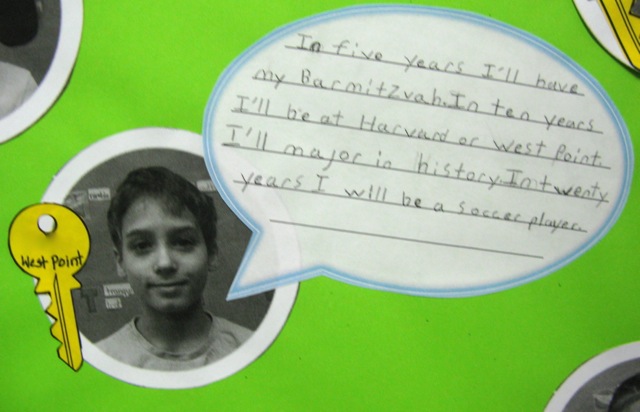 In five years I'll have
my Barmitzvah. In ten years
I'll be at Harvard or West Point.
I'll major in history. In twenty
years I will be a soccer player.
West Point